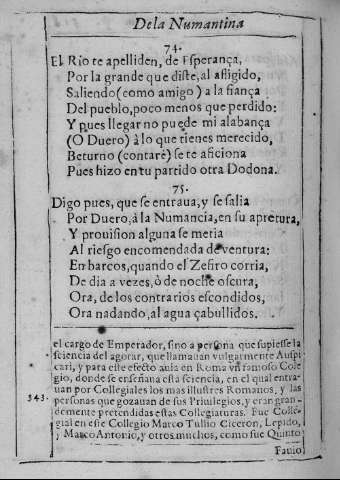 De la Numantina
74.
El Rio te apelliden, de Esperança,
Por la grande que diste, al afligido,
Saliendo (como amigo) a la fiança
Del pueblo, poco menos que perdido:
Y pues llegar no puede mi alabança
(O Duero) à lo que tienes merecido,
Beturno (contarè) se te aficiona
Pues hizo en tu partido otra Dodona.
75.
Digo pues, que se entraua, y se salia
Por Duero, à la Numancia, en su apretura,
Y prouision alguna se metia
Al riesgo encomendada de ventura:
En barcos, quando el Zefiro corria,
De dia a vezes, ò de noche oscura,
Ora, de los contrarios escondidos,
Ora nadando, al agua çabullidos.
el cargo de Emperador, sino a persona que supiesse la
sciencia del agorar, que llamauan vulgarmente Auspi
cari, y para este efecto auia en Roma vn famoso Cole
gio, donde se enseñaua esta sciencia, en el qual entra-
uan por Collegiales los mas illustres Romanos, y las
343. personas que gozauan de sus Priuilegios, y eran gran-
demente pretendidas estas Collegiaturas. Fue Colle-
gial en este Collegio Marco Tullio Ciceron, Lepido,
y Marco Antonio, y otros muchos, como fue Quinto
Fauio